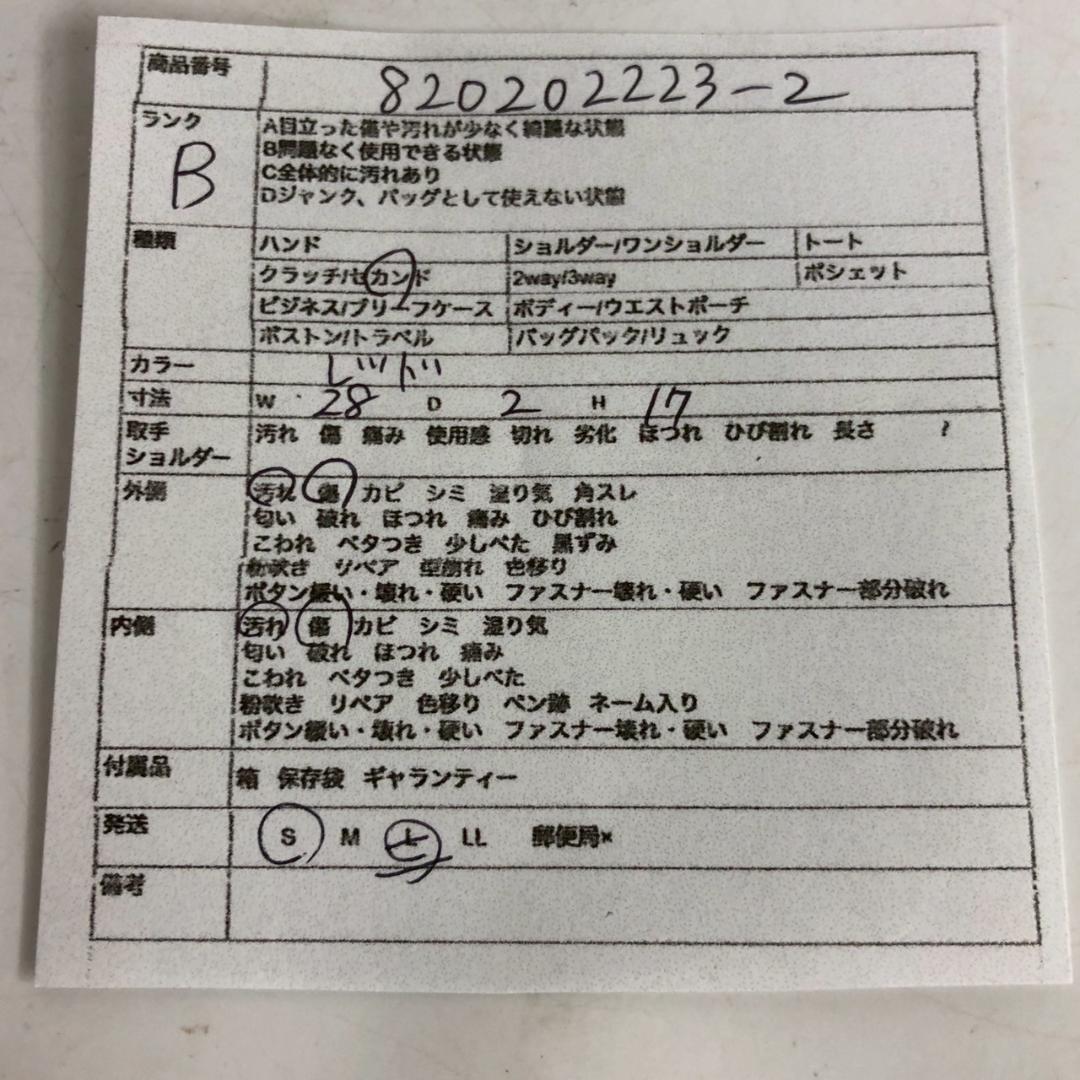 商品番号 820202223-2
ランク B
A目立った傷や汚れが少なく綺麗な状態
B問題なく使用できる状態
C全体的に汚れあり
Dジャンク、バッグとして使えない状態
種類 ハンド ショルダー/ワンショルダー トート
クラッチ/セカンド 2way/3way ポシェット
ビジネス/ブリーフケース ボディー/ウエストポーチ
ボストン/トラベル バッグパック/リュック
カラー レッド
寸法 W 28 D 2 H 17
取手 汚れ 傷 痛み 使用感 切れ 劣化 ほつれ ひび割れ 長さ ～
ショルダー
外側 汚れ 傷 カビ シミ 湿り気 角スレ
匂い 破れ ほつれ 痛み ひび割れ
こわれ ベタつき 少しべた 黒ずみ
粉吹き リペア 型崩れ 色移り
ボタン緩い・壊れ・硬い ファスナー壊れ・硬い ファスナー部分破れ
内側 汚れ 傷 カビ シミ 湿り気
匂い 破れ ほつれ 痛み
こわれ ベタつき 少しべた
粉吹き リペア 色移り ペン跡 ネーム入り
ボタン緩い・壊れ・硬い ファスナー壊れ・硬い ファスナー部分破れ
付属品 箱 保存袋 ギャランティー
発送 S M L LL 郵便局×
備考